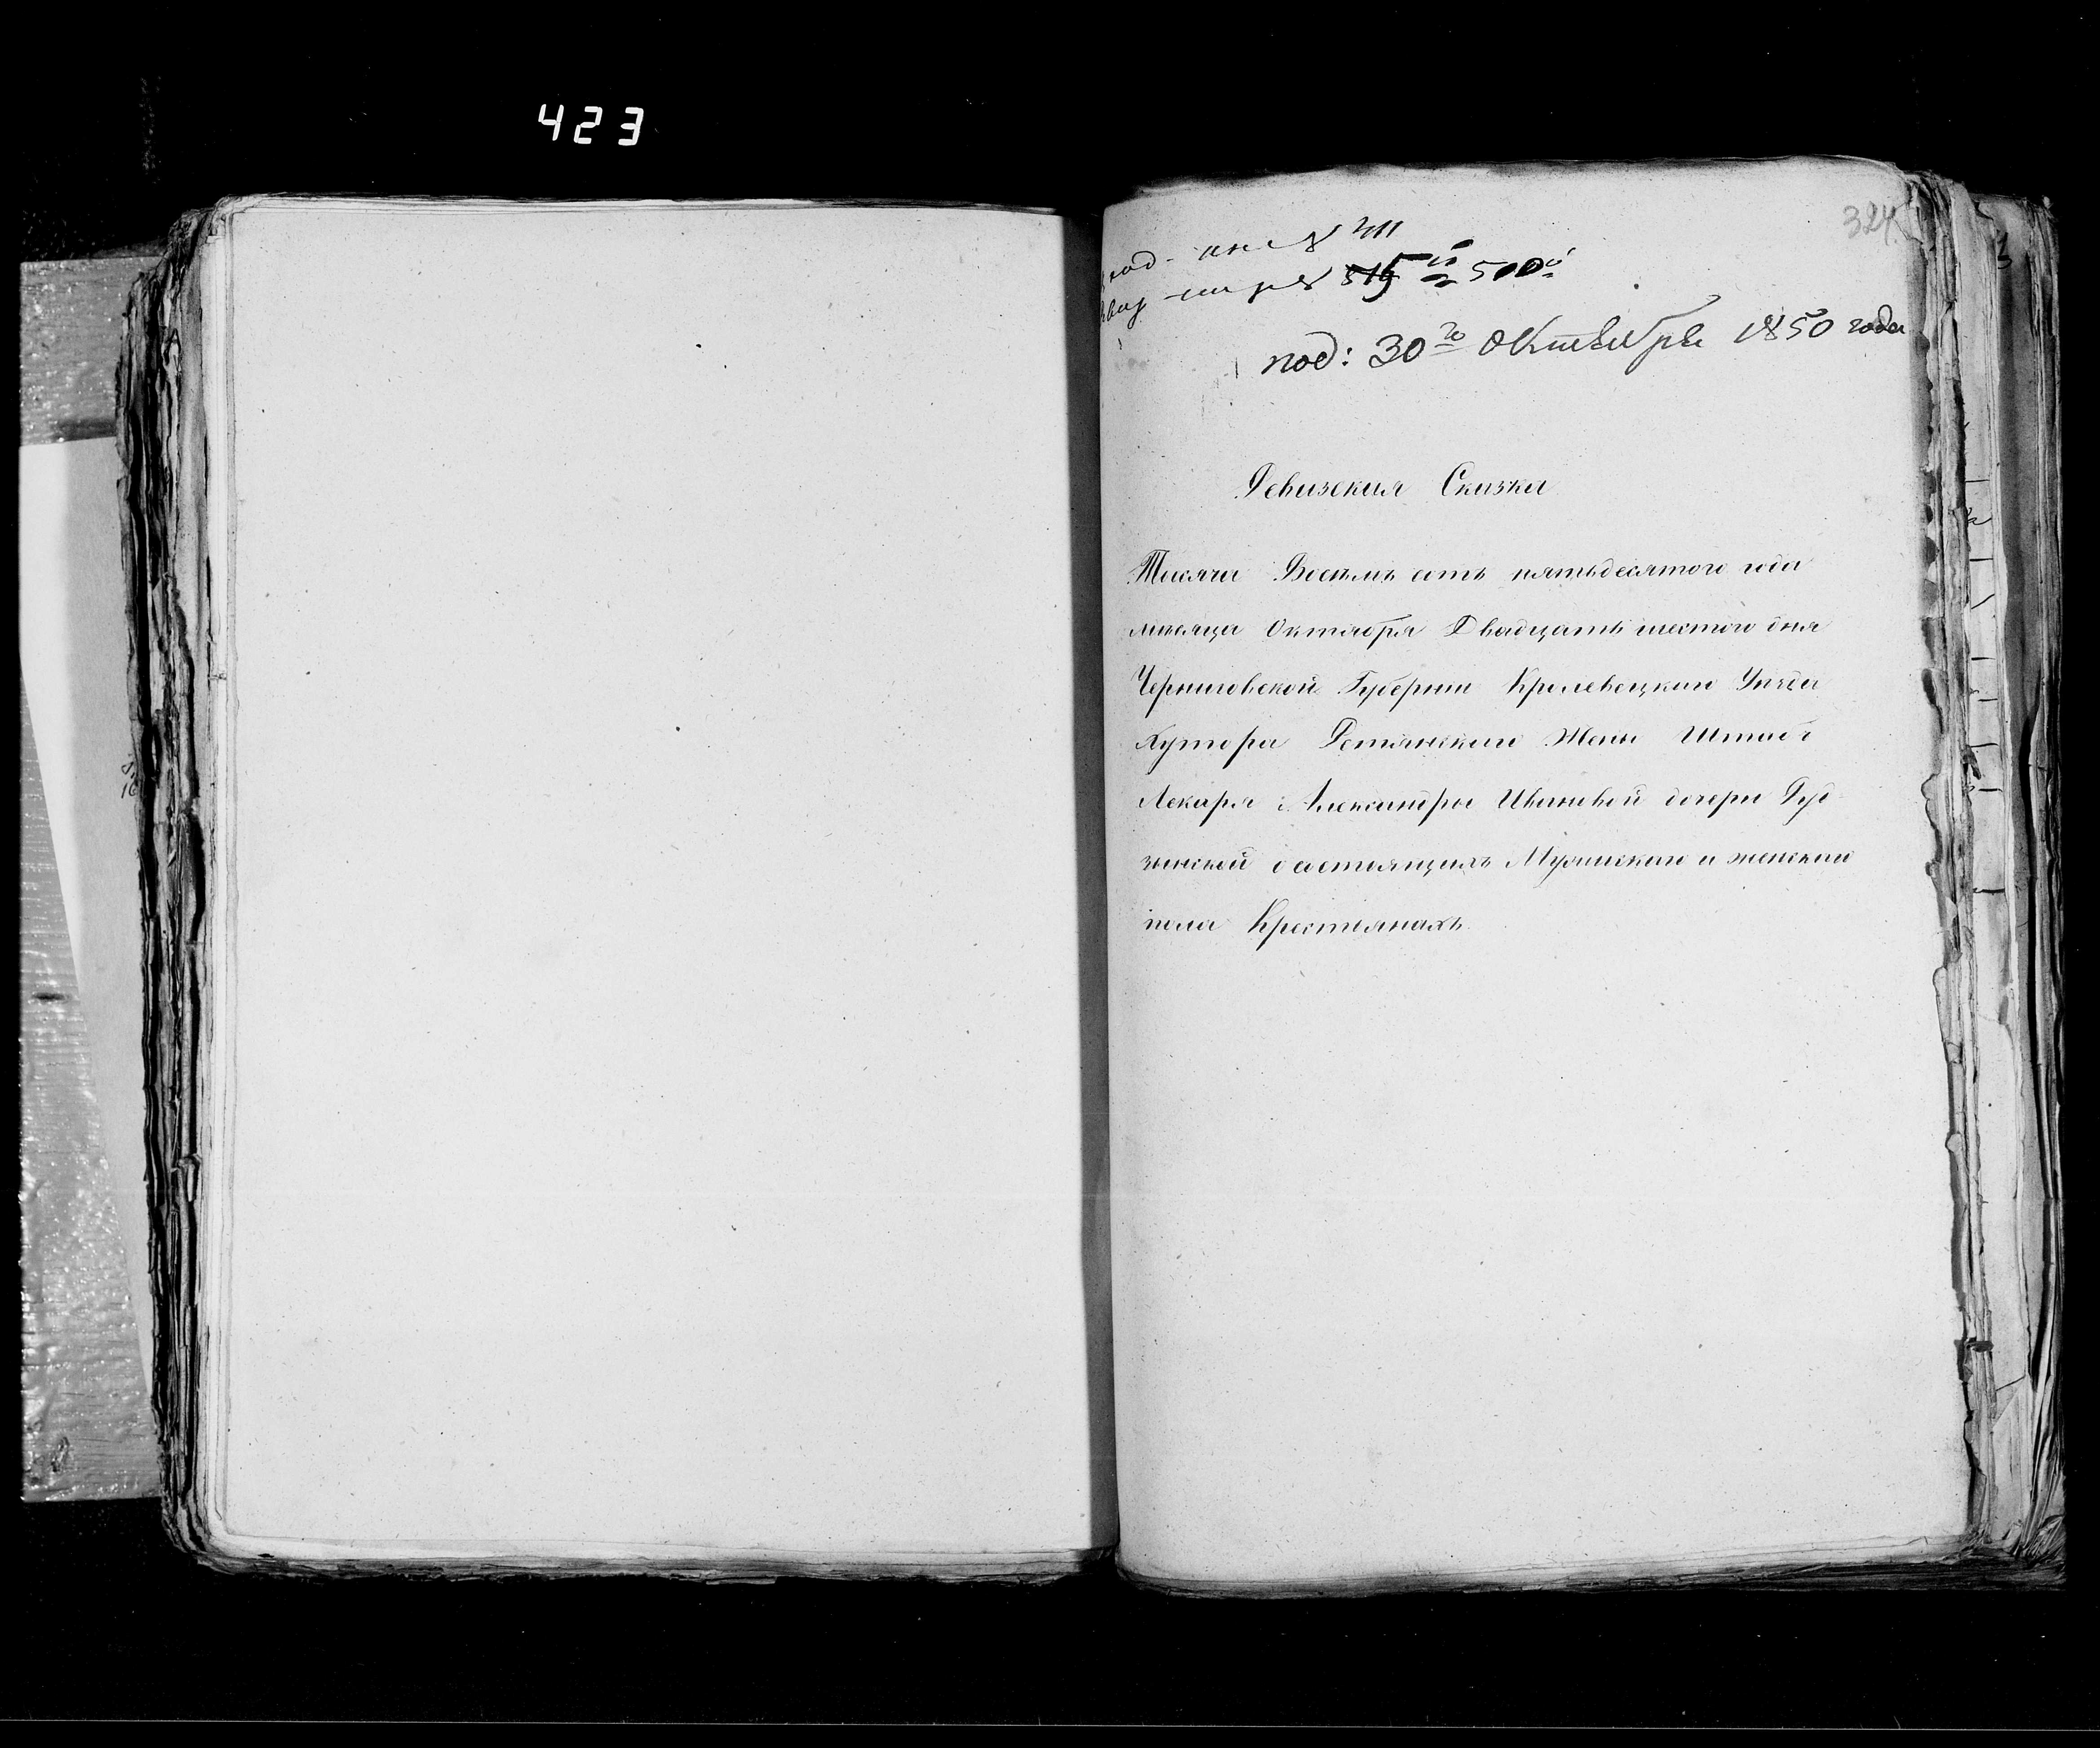 423
324
№ 311
515 500
под: 30го Октября 1850 года
Ревизская Сказка
Тисяча Восемъ сотъ пятьдесятого года
месяца Октября Двадцать шестого дня
Черниговской Губернии Кролевецкаго Уезда
Хутора Ретянскаго Жены Штабъ
Лекаря Александры Ивановой дочери Руд
зинской о состоящихъ Мужескаго и женскаго
пола Крестьянахъ